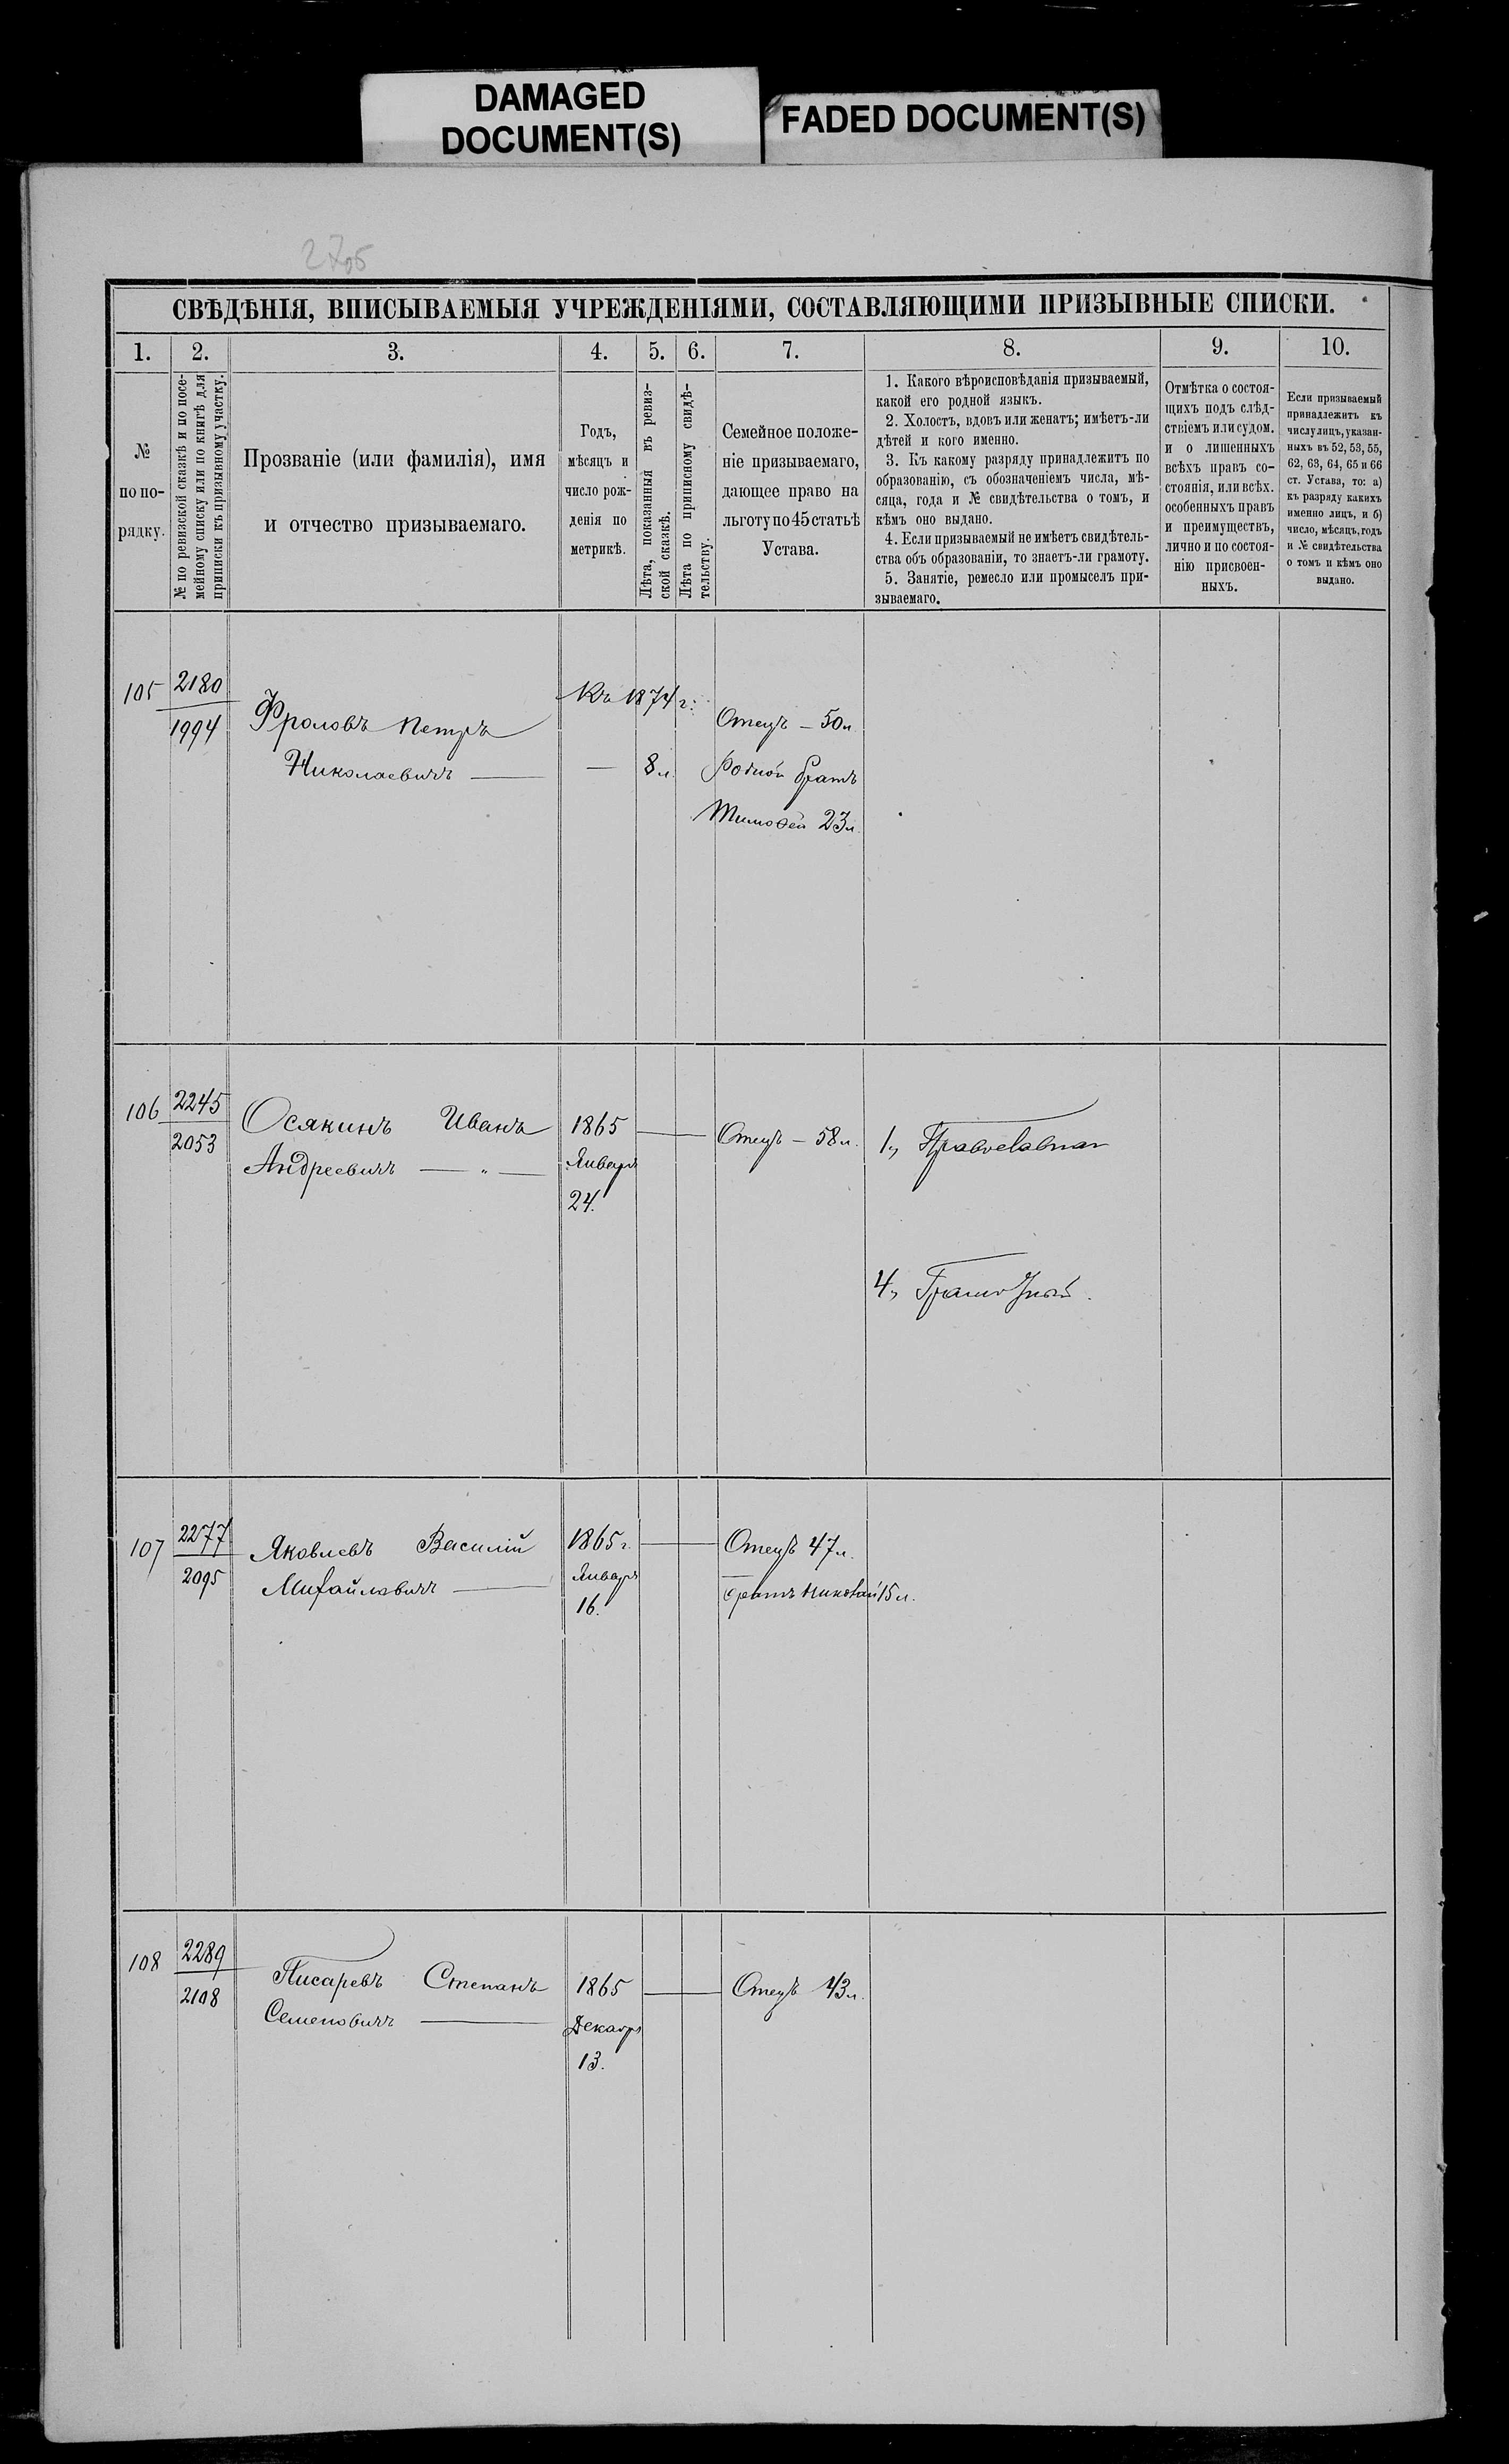 DAMAGED
DOCUMENT(S)
FADED DOCUMENT(S)
2705
СВѢДѢНІЯ, ВПИСЫВАЕМЫЯ УЧРЕЖДЕНІЯМИ, СОСТАВЛЯЮЩИМИ ПРИЗЫВНЫЕ СПИСКИ.
1. 2. 3. 4. 5. 6. 7. 8. 9. 10.
№
по по-
рядку.
№ по ревизской сказкѣ и по посе-
мейному списку или по книгѣ для
приписки къ призывному участку.
Прозваніе (или фамилія), имя
и отчество призываемаго.
Годъ,
мѣсяцъ и
число рож-
денія по
метрикѣ.
Лѣта, показанныя въ ревиз-
ской сказкѣ.
Лѣта по приписному свидѣ-
тельству.
Семейное положе-
ніе призываемаго,
дающее право на
льготу по 45 статьѣ
Устава.
1. Какого вѣроисповѣданія призываемый,
какой его родной языкъ.
2. Холостъ, вдовъ или женатъ; имѣетъ-ли
дѣтей и кого именно.
3. Къ какому разряду принадлежитъ по
образованію, съ обозначеніемъ числа, мѣ-
сяца, года и № свидѣтельства о томъ, и
кѣмъ оно выдано.
4. Если призываемый не имѣетъ свидѣтель-
ства объ образованіи, то знаетъ-ли грамоту.
5. Занятіе, ремесло или промыселъ при-
зываемаго.
Отмѣтка о состоя-
щихъ подъ слѣд-
ствіемъ или судом.
и о лишенныхъ
всѣхъ правъ со-
стоянія, или всѣх.
особенныхъ правъ
и преимуществъ,
лично и по состоя-
нію присвоен-
ныхъ.
Если призываемый
принадлежитъ къ
числу лицъ, указан-
ныхъ въ 52, 53, 55,
62, 63, 64, 65 и 66
ст. Устава, то: а)
къ разряду какихъ
именно лицъ, и б)
число, мѣсяцъ, годъ
и № свидѣтельства
о томъ и кѣмъ оно
выдано.
105 2180 Къ 1874 г:
1994 Фроловъ Петръ Отецъ — 50 л.
Николаевичъ — — 8 л. родной братъ
Тимофей 23 л.
106 2245 Осякинъ Иванъ 1865 — Отецъ — 58 л. 1, Православная
2053 Андреевичъ — „ — Января
24.
4, Грамотный.
107 2277 Яковлевъ Василій 1865 г. — Отецъ 47 л.
2095 Михайловичъ — Января братъ Николай 15 л.
16.
108 2289 Писаревъ Степанъ 1865 — Отецъ 43 л.
2108 Семеновичъ — Декабря
13.